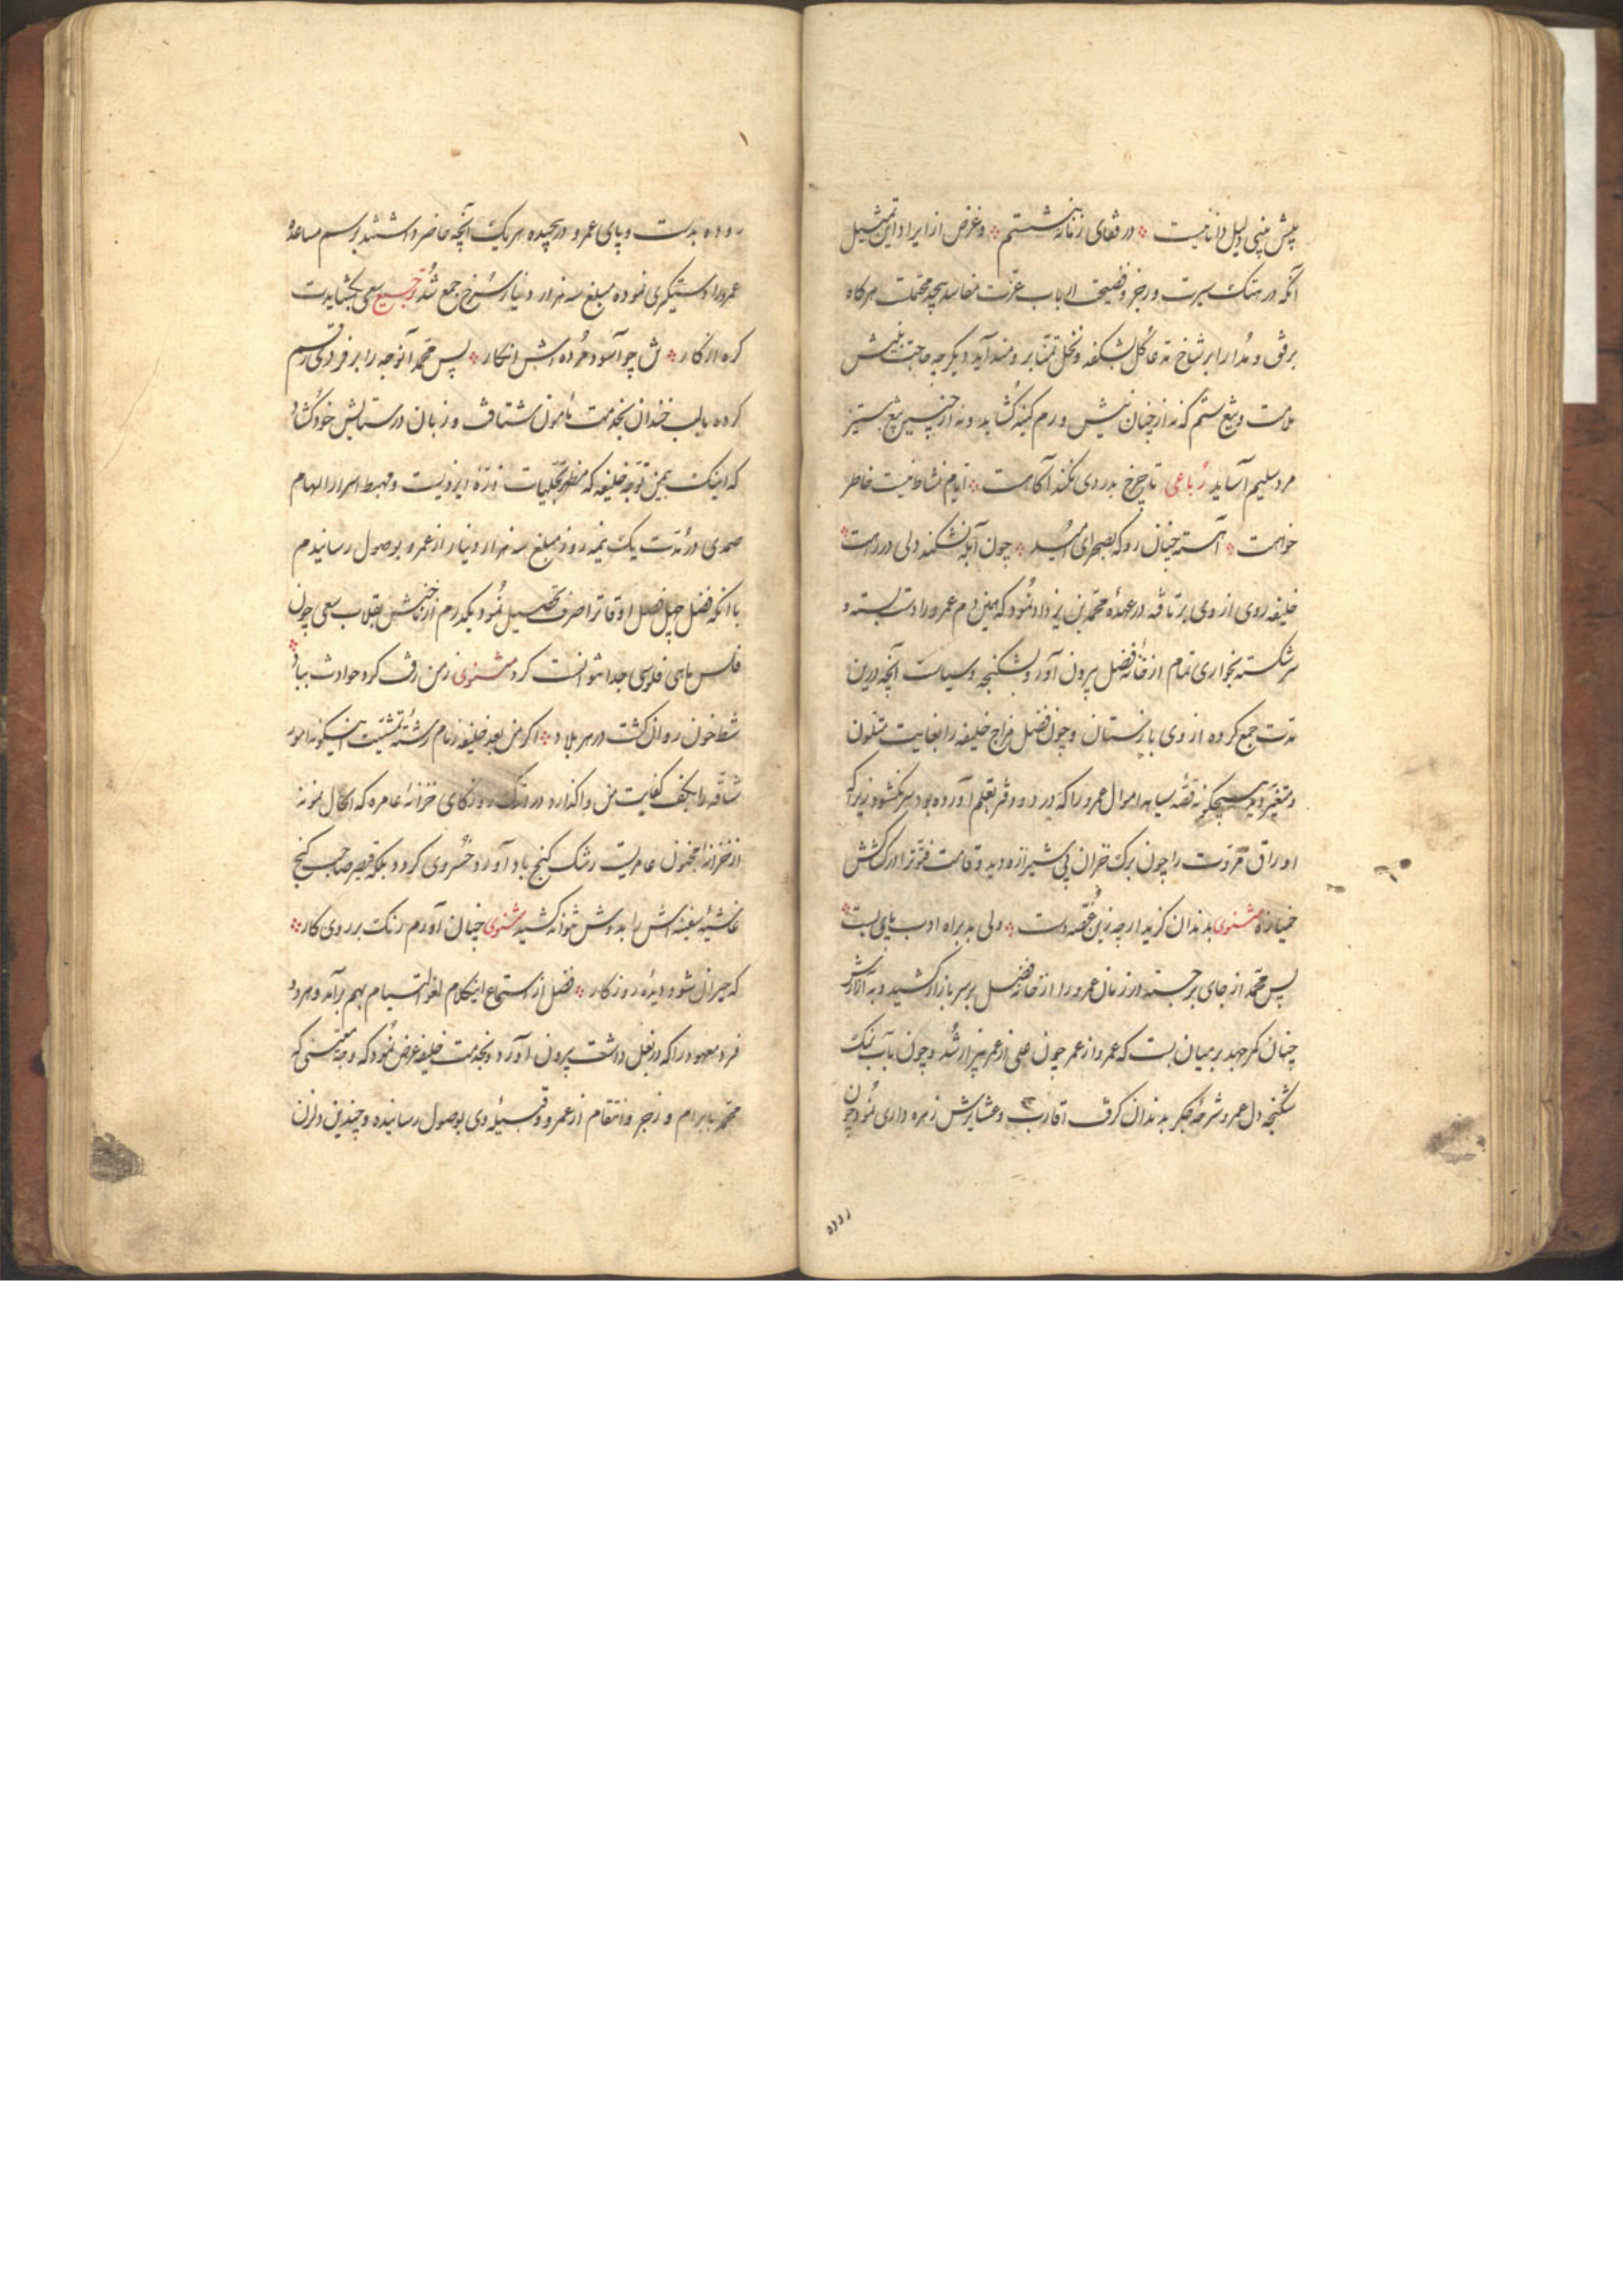 پیش بینی دلیل دانائیست در قفای زمانه ننشستم و غرض از ایراد این تمثیل
آنکه در هتک سیرت و زجر و فضیحت ارباب عزت مفاسد بیحد محتملست هرکاه
برفق و مدارا بر شاخ مدعا کل بشکفد و نخل تمنا برومند آید دیکر چه حاجت بنیش
ملامت و تیغ ستم که نه از چنان نیش ورم کینه کشاید و نه از چنین تیغ بستیز
مرد سلیم آساید رباعی تا چرخ بدردی نکند آکاهت ایام نشاط نیست خاطر
خواهت آهسته چنان رو که بصحرای امید چون آبله نشکند دلی در راهت
خلیفه روی از وی برتافته در عهدهٔ محمد بن یزداد نمود که همین دم عمرو را دست بسته و
سر شکسته بخواری تمام از خانه فضل بیرون آورد بشکنجه و سیاست آنچه درین
مدت جمع کرده از وی بازستان و چون فضل مزاج خلیفه را بغایت متلون
و متغیر دید هیچکونه قصه سیاهه اموال عمرو را که در دو ورق بقلم آورده بود سر نکشود زیرا که
اوراق مروت را چون برک خزان بی شیرازه دید و قامت فتوترا در کشش
خمیازه مثنوی بدندان کزید ارچه زین غصه دست ولی بد براه ادب پای بست
پس محمد از جای برجسته در زمان عمرو را از خانه فضل بر سر بازار کشید و به آزارش
چنان کمر جهد بر میان بست که عمرو از عمر چون علی از عمر بیزار شد و چون بآب نمک
شکنجه دل عمرو شرحه جکر بدندان کرفت اقارب و عشایرش زهره داری نمود چون
روده
روده بدست و پای عمرو در پیچیده هریک آنچه حاضر داشتند برسم مساعدهٔ
عمرو را دستکیری نموده مبلغ سه هزار دینار سرخ جمع شد ترجیع سعی بکشاید
کره از کار ش چو آسود مرده اش انکار پس محمد آنوجه را بر فردی رقم
کرده با لب خندان بخدمت مامون شتافت و زبان در ستایش خود کشاد
که اینک بیمن توجه خلیفه که مظهر تجلیات ذرهٔ ایزدیست و مهبط اسرار الهام
صمدی در مدت یک نیمه روز مبلغ سه هزار دینار از عمرو بوصول رسانیدم
با آنکه فضل چهل فصل اوقات را صرف تحصیل نمود یکدرم از خانه اش بقلاب سعی چون
فلس ماهی فلوسی جدا نتوانست کرد مثنوی زمن رفت کرد حوادث بباد
شط خون روان کشت در هر بلاد اکر من بعد خلیفه زمام رشته تمشیت اینکونه امور
شاقه را بکف کفایت من واکذارد در اندک روزکاری خزانهٔ عامره که الحال نمونه
از خزانهٔ مجنون عامریست رشک کنج بادآورد خسروی کردد بلکه قیصر صاحب کنج
غاشیهٔ سفینه اش را بدوش تواند کشید مثنوی چنان آورم رنک بر روی کار
که حیران شود دیدهٔ روزکار فضل از استماع اینکلام لغو التیام بهم برآمد و هر دو
فرد معهود را که در بغل داشت بیرون آورد و بخدمت خلیفه عرض نمود که وجه معینی که
محمد بابرام و زجر و انتقام از عمرو و قبیلهٔ وی بوصول رسانیده و چندین دل زن